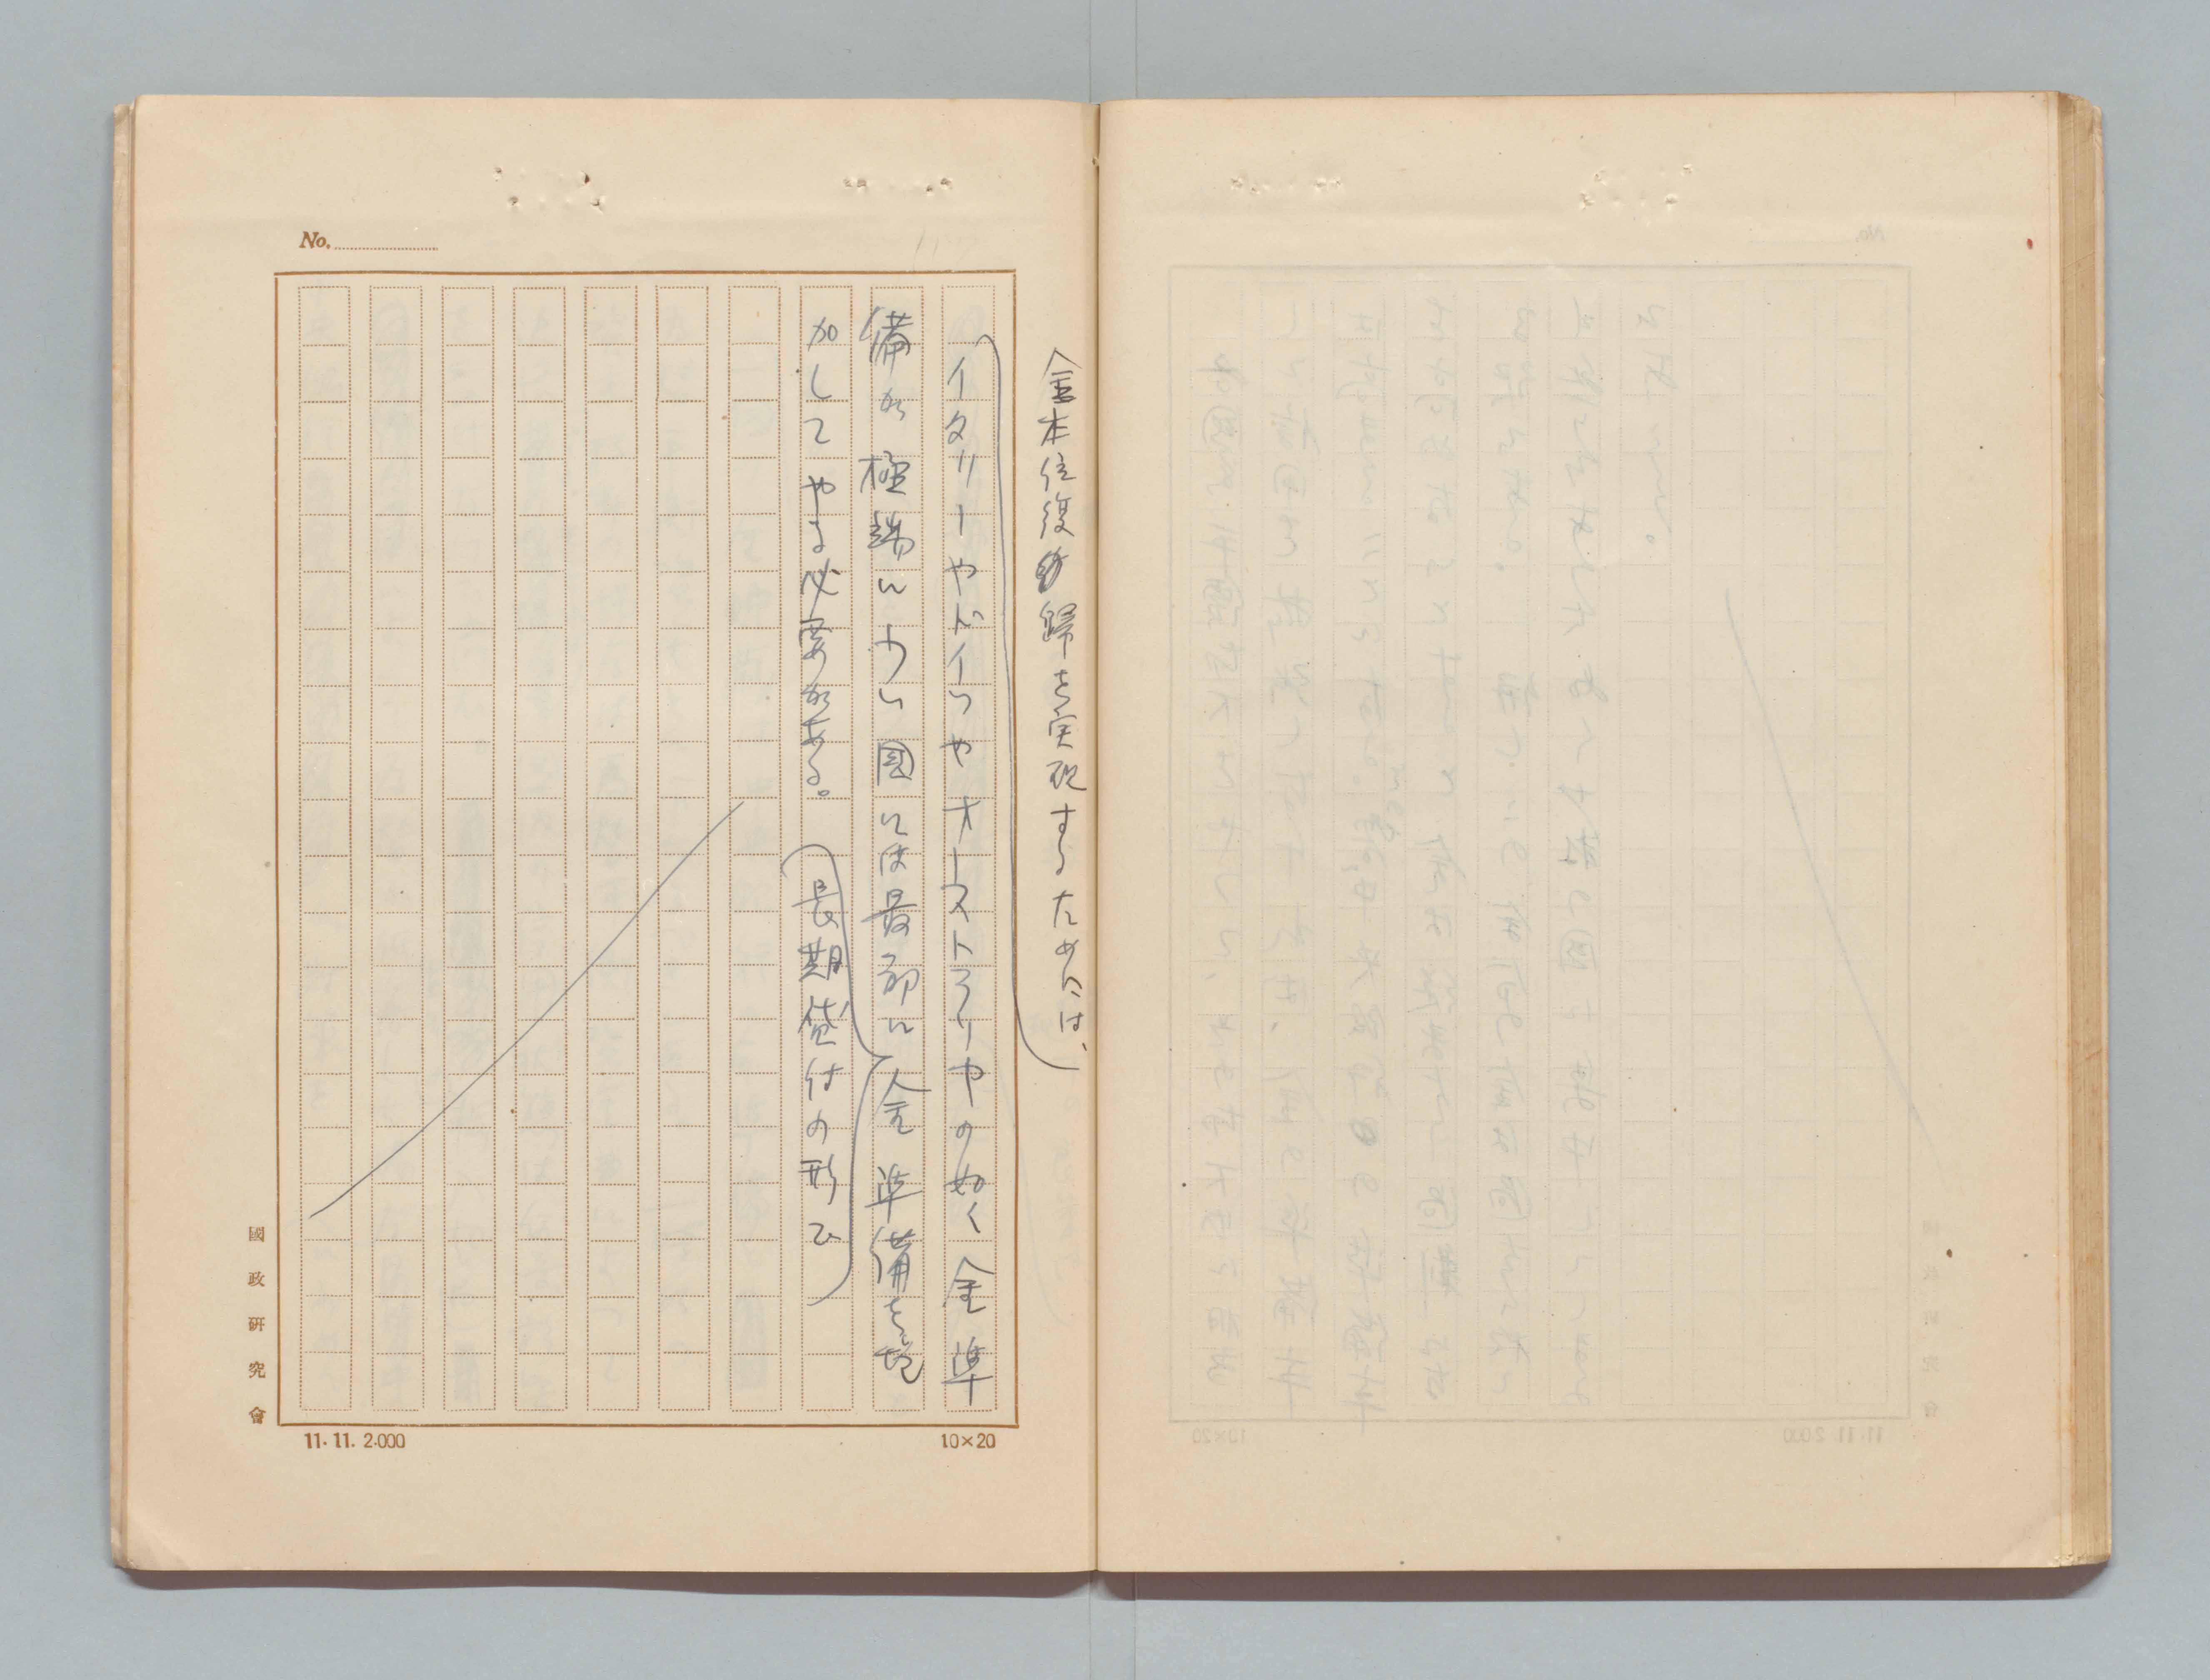 金本位復歸を実現するためには、
イタリーやドイツやオーストラリヤの如く金準
備が極端に少い國には最初に金準備を増
加してやる必要がある。
長期貸付の形で
No.
國政研究會
11. 11. 2.000
10×20